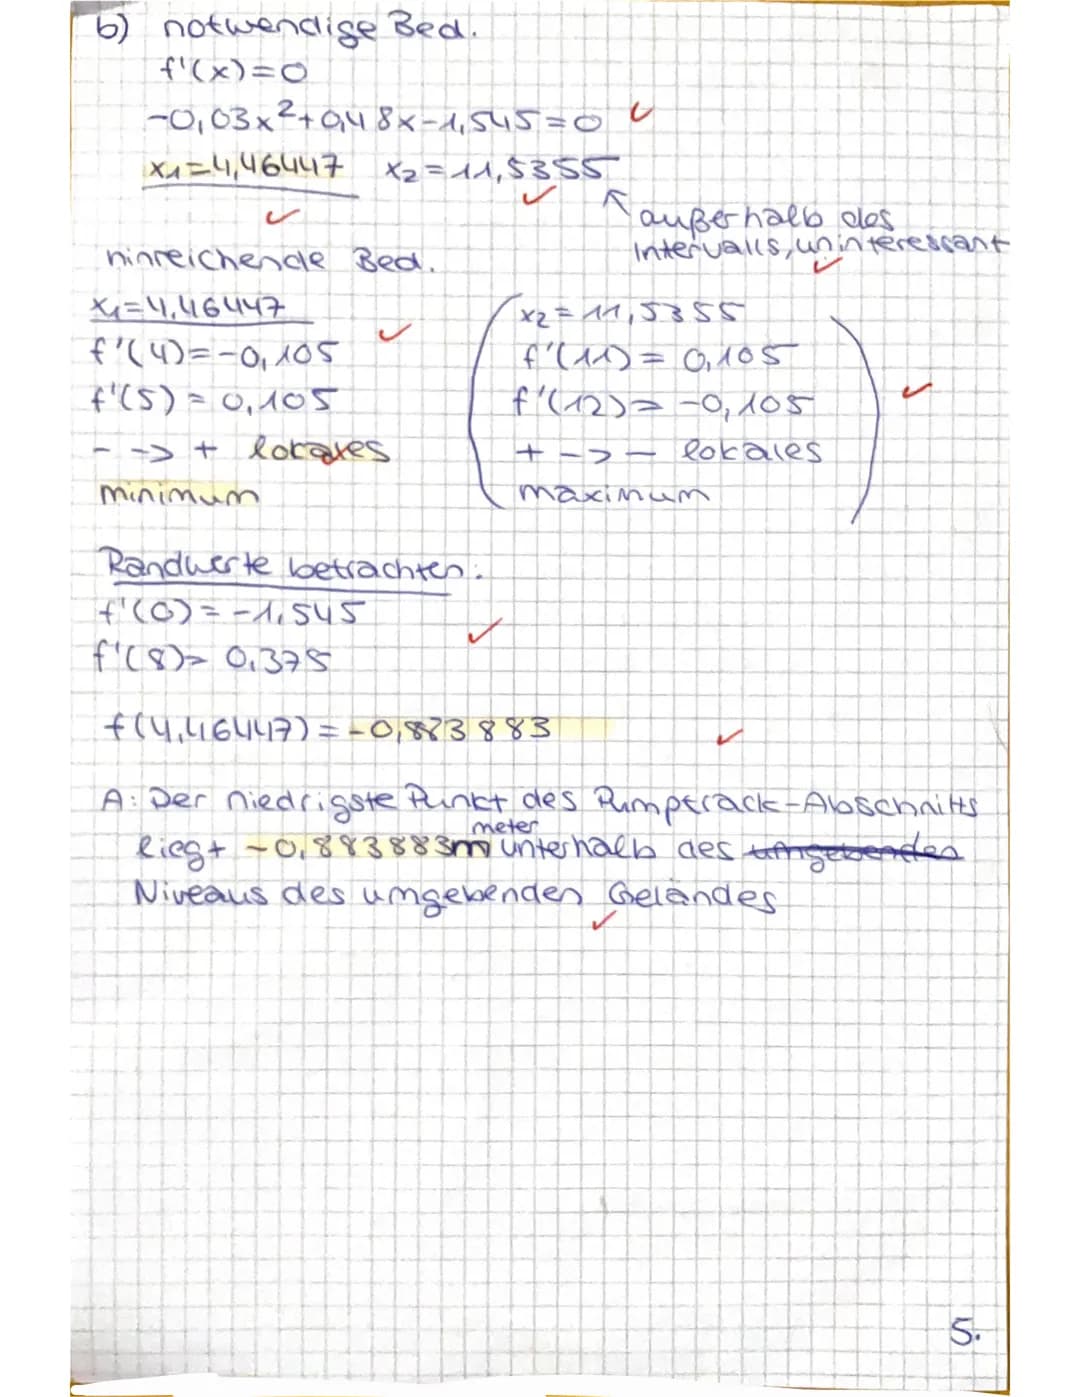 b) notwendige Bed.
f'(x)=0
-0,03x²+0,48x-1,545=0
x₁=4,46447 x₂=11,5355
außerhalb des
Intervalls, uninteressant
hinreichende Bed.
x₁=4,46447
f'(4)=-0,105
f'(5)=0,105
- -> + lokales
minimum
x₂=11,5355
f'(11)=0,105
f'(12)=-0,105
+ -> - lokales
maximum
Randwerte betrachten:
f'(0)=-1,545
f'(8)= 0,375
f(4,46447)=-0,883883
A: Der niedrigste Punkt des Pumptrack-Abschnitts
meter
liegt -0,883883m unterhalb des umgebenden
Niveaus des umgebenden Geländes
5.